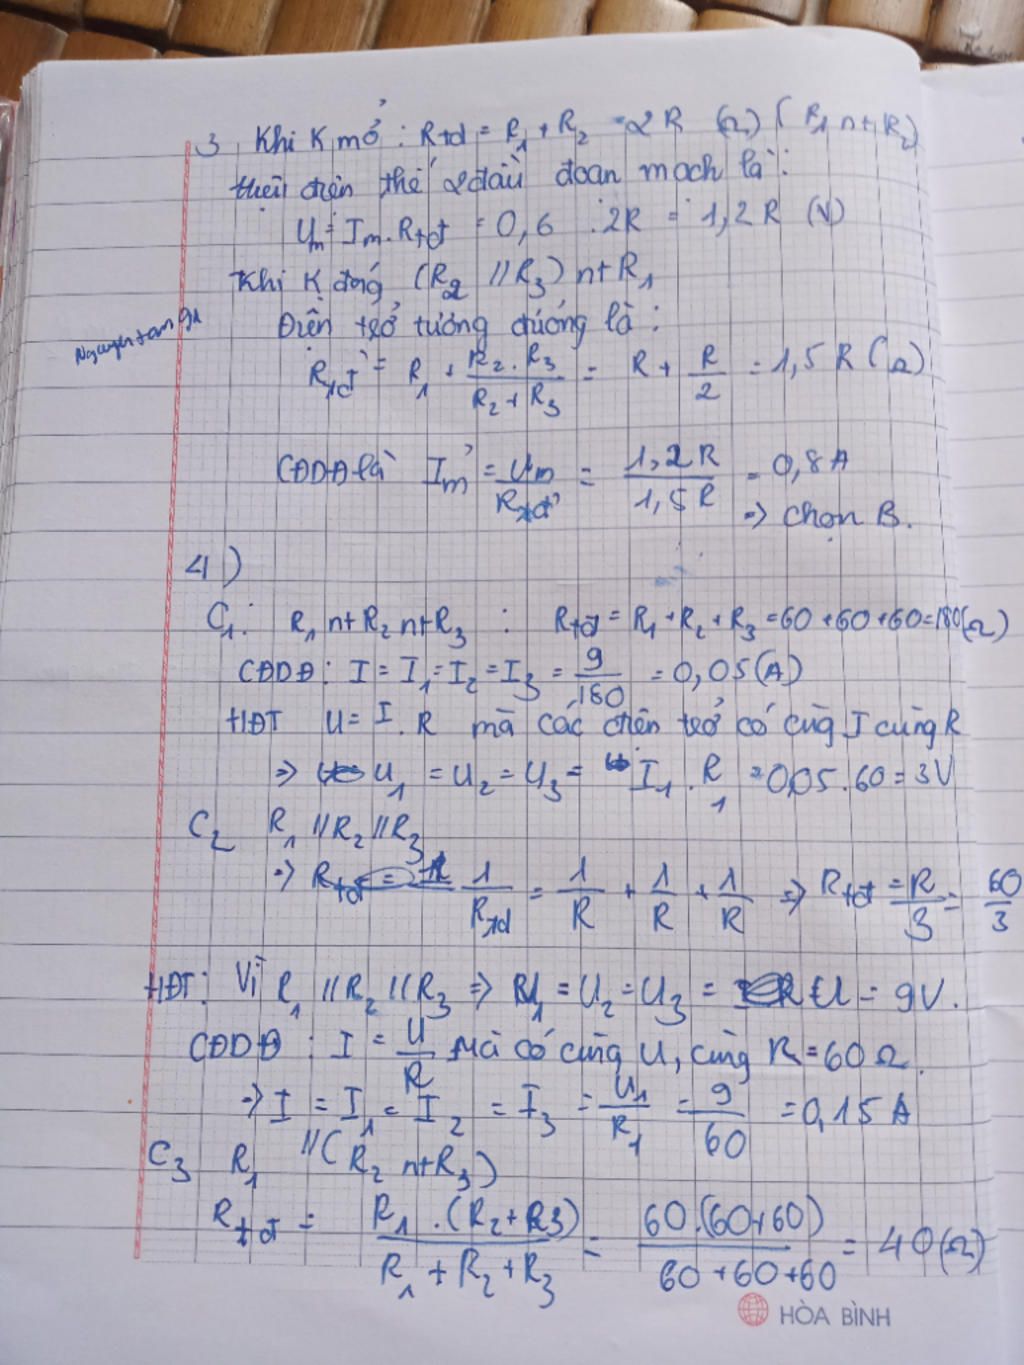 3, Khi K mở : Rtđ = R1 + R2 = 2R (Ω) (R1 nt R2)
điện thế 2 đầu đoạn mạch là :
Um = Im. Rtđ = 0,6 . 2R = 1,2R (V)
Khi K đóng (R2 // R3) nt R1
Điện trở tương đương là :
Nguyentam91
Rtđ' = R1 + R2.R3/R2+R3 = R + R/2 = 1,5R (Ω)
CĐDĐ là Im' = Um/Rtđ' = 1,2R/1,5R = 0,8A
=> chọn B.
4)
C1: R1 nt R2 nt R3 : Rtđ = R1 + R2 + R3 = 60 + 60 + 60 = 180(Ω)
CĐDĐ : I = I1 = I2 = I3 = 9/180 = 0,05(A)
HĐT U = I . R mà các điện trở có cùng I cùng R
=> U1 = U2 = U3 = I1 . R1 = 0,05 . 60 = 3V
C2 R1 // R2 // R3
=> 1/Rtđ = 1/R + 1/R + 1/R => Rtđ = R/3 = 60/3
HĐT : Vì R1 // R2 // R3 => U1 = U2 = U3 = U = 9V.
CĐDĐ : I = U/R Mà có cùng U, cùng R = 60Ω.
=> I = I1 = I2 = I3 = U1/R1 = 9/60 = 0,15A
C3 R1 // (R2 nt R3)
Rtđ = R1 . (R2 + R3)/R1 + R2 + R3 = 60.(60+60)/60+60+60 = 40(Ω)
HÒA BÌNH